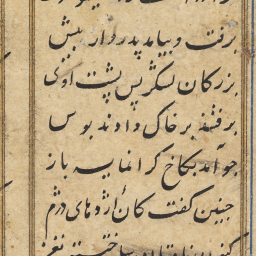 برفت و بیامد پدروار پیش
بزرگان لشگر پس پشت اوی
برفتند بر خاک دادند بوس
چو آمد بکاخ گرانمایه باز
چنین گفت کان اژدهای دژم